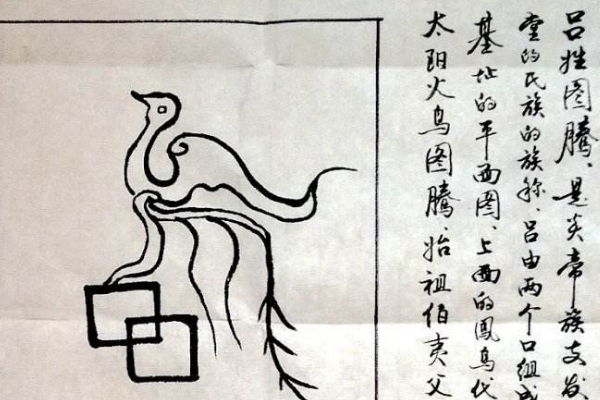 吕姓图腾、是炎帝族支
堂的氏族的族称、吕由两个口组成
基址的平面图、上面的凤鸟代
太阳火鸟图腾、始祖伯夷父